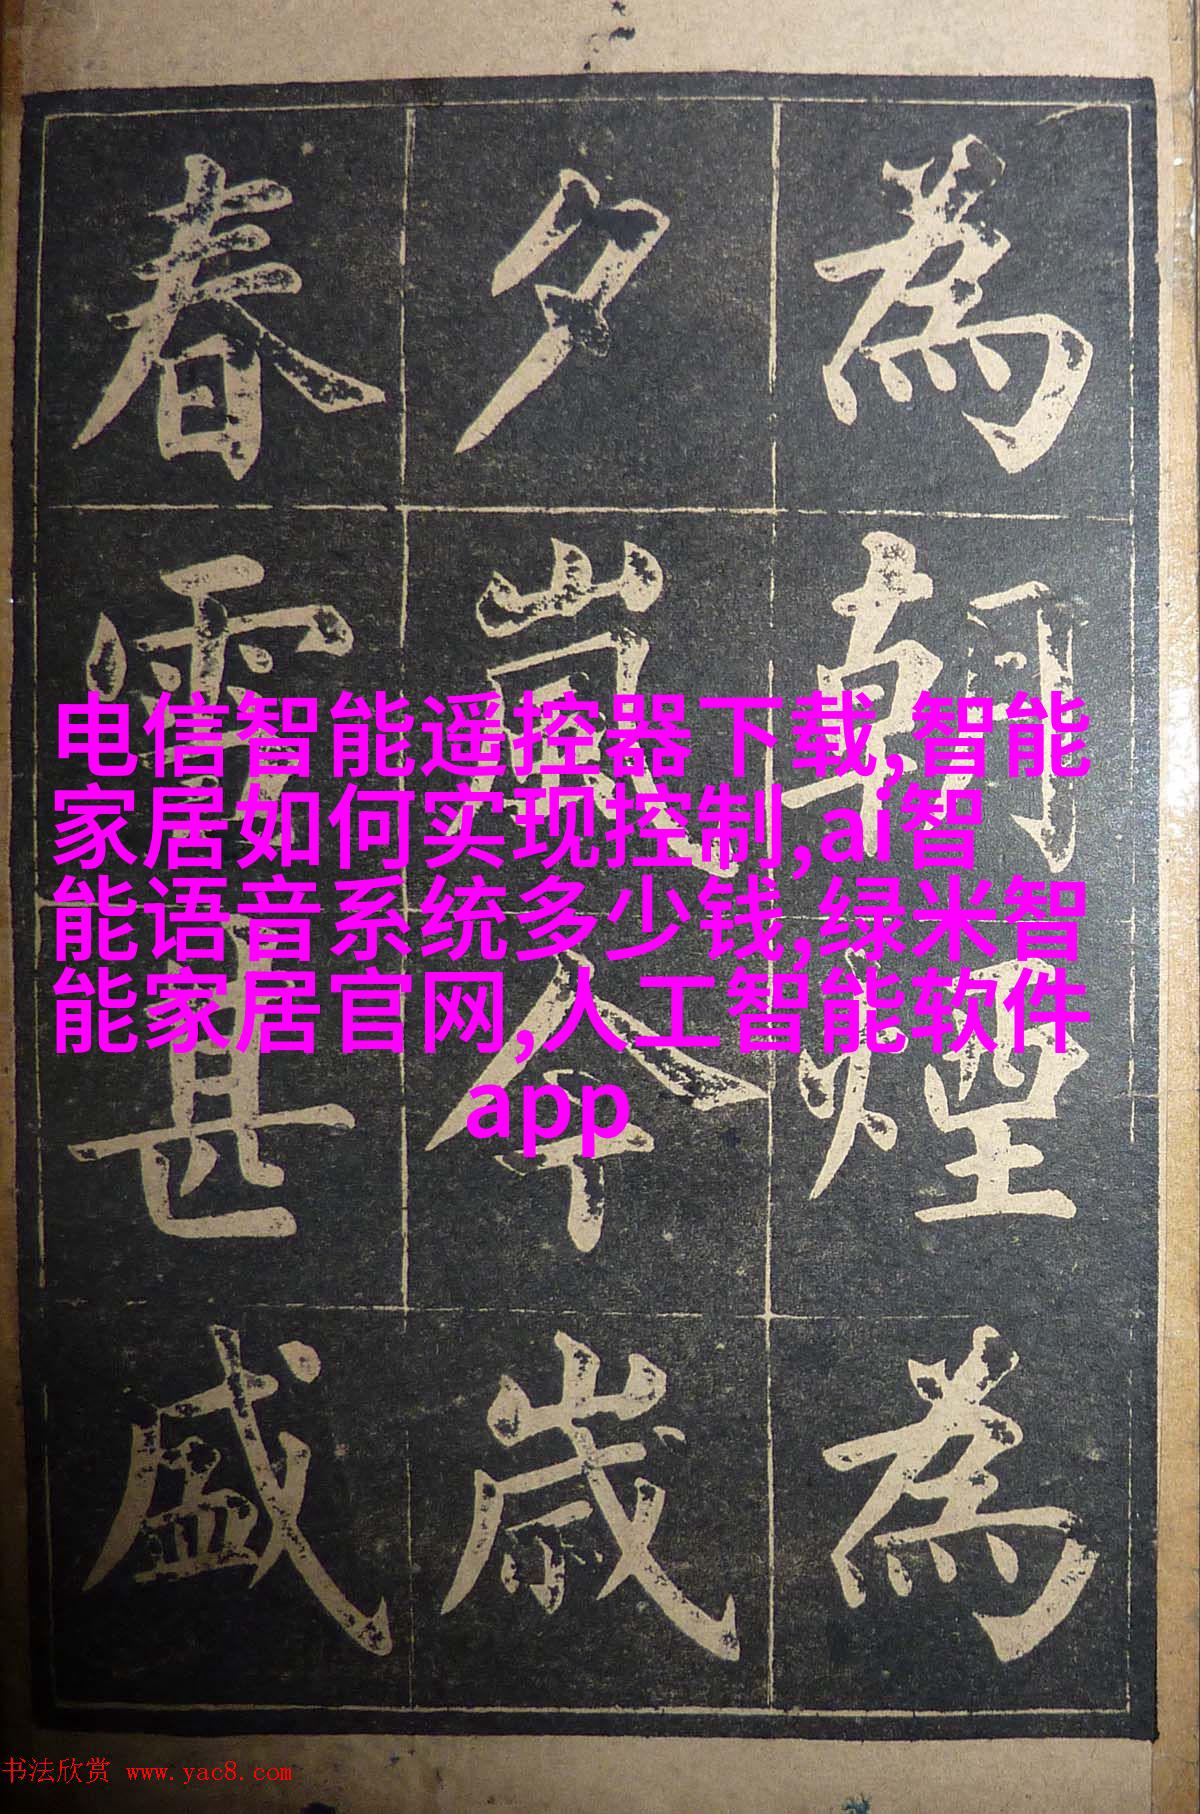 為朝煙為
夕嵐今歲
春雪甚盛
电信智能遥控器下载,智能
家居如何实现控制,ai智
能语音系统多少钱,绿米智
能家居官网,人工智能软件
app
书法欣赏 www.yac8.com